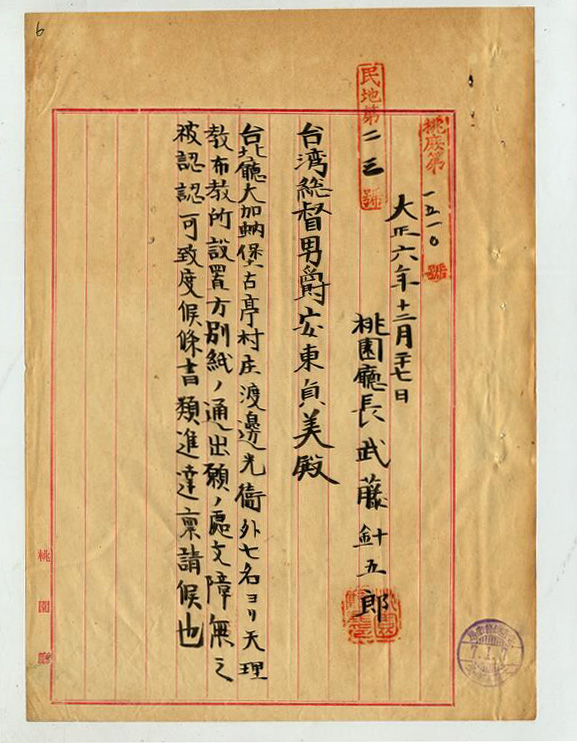 6
桃庶第一五一〇號
民地第二三號
大正六年十二月二十七日
桃園廳長武藤針五郎
台湾総督男爵安東貞美殿
台北廳大加蚋堡古亭村庄渡邊光衞外七名ヨリ天理
教布教所設置方別紙ノ通出願ノ處支障無之
被認認可致度候條書類進達稟請候也
桃園廳
7.1.